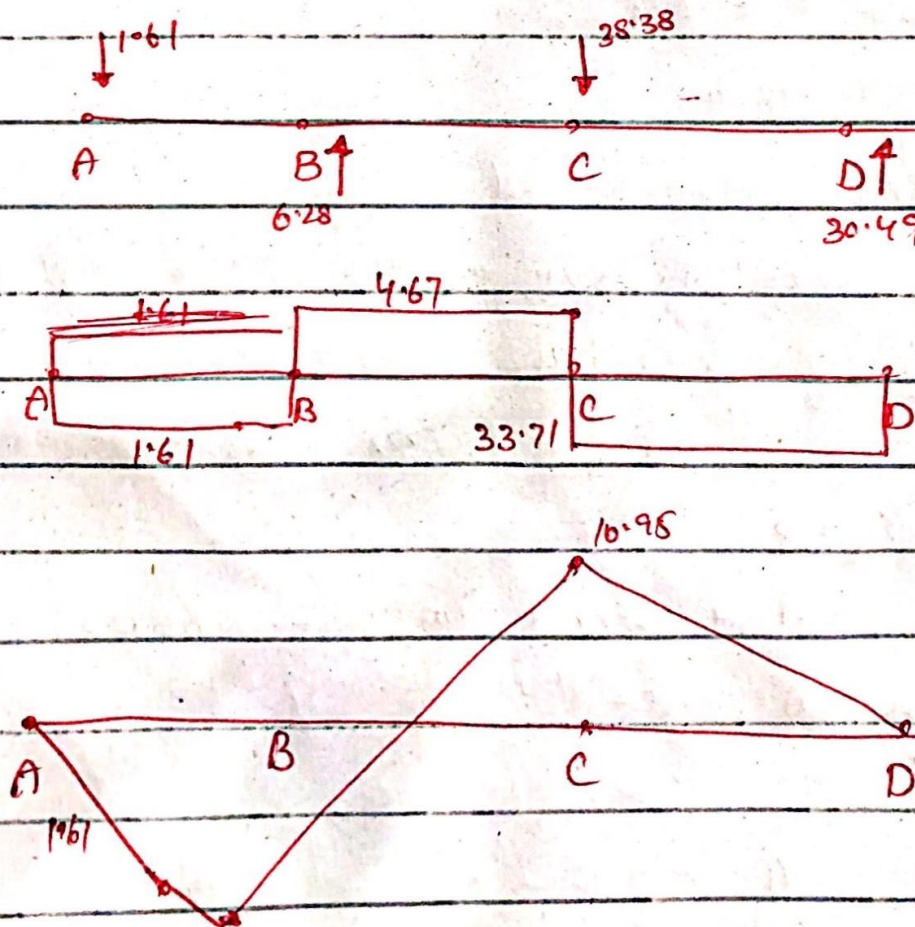 1.61 38.38
A B C D
6.28 30.49
4.61 4.67
A B C D
1.61 33.71
10.95
A B C D
1.61